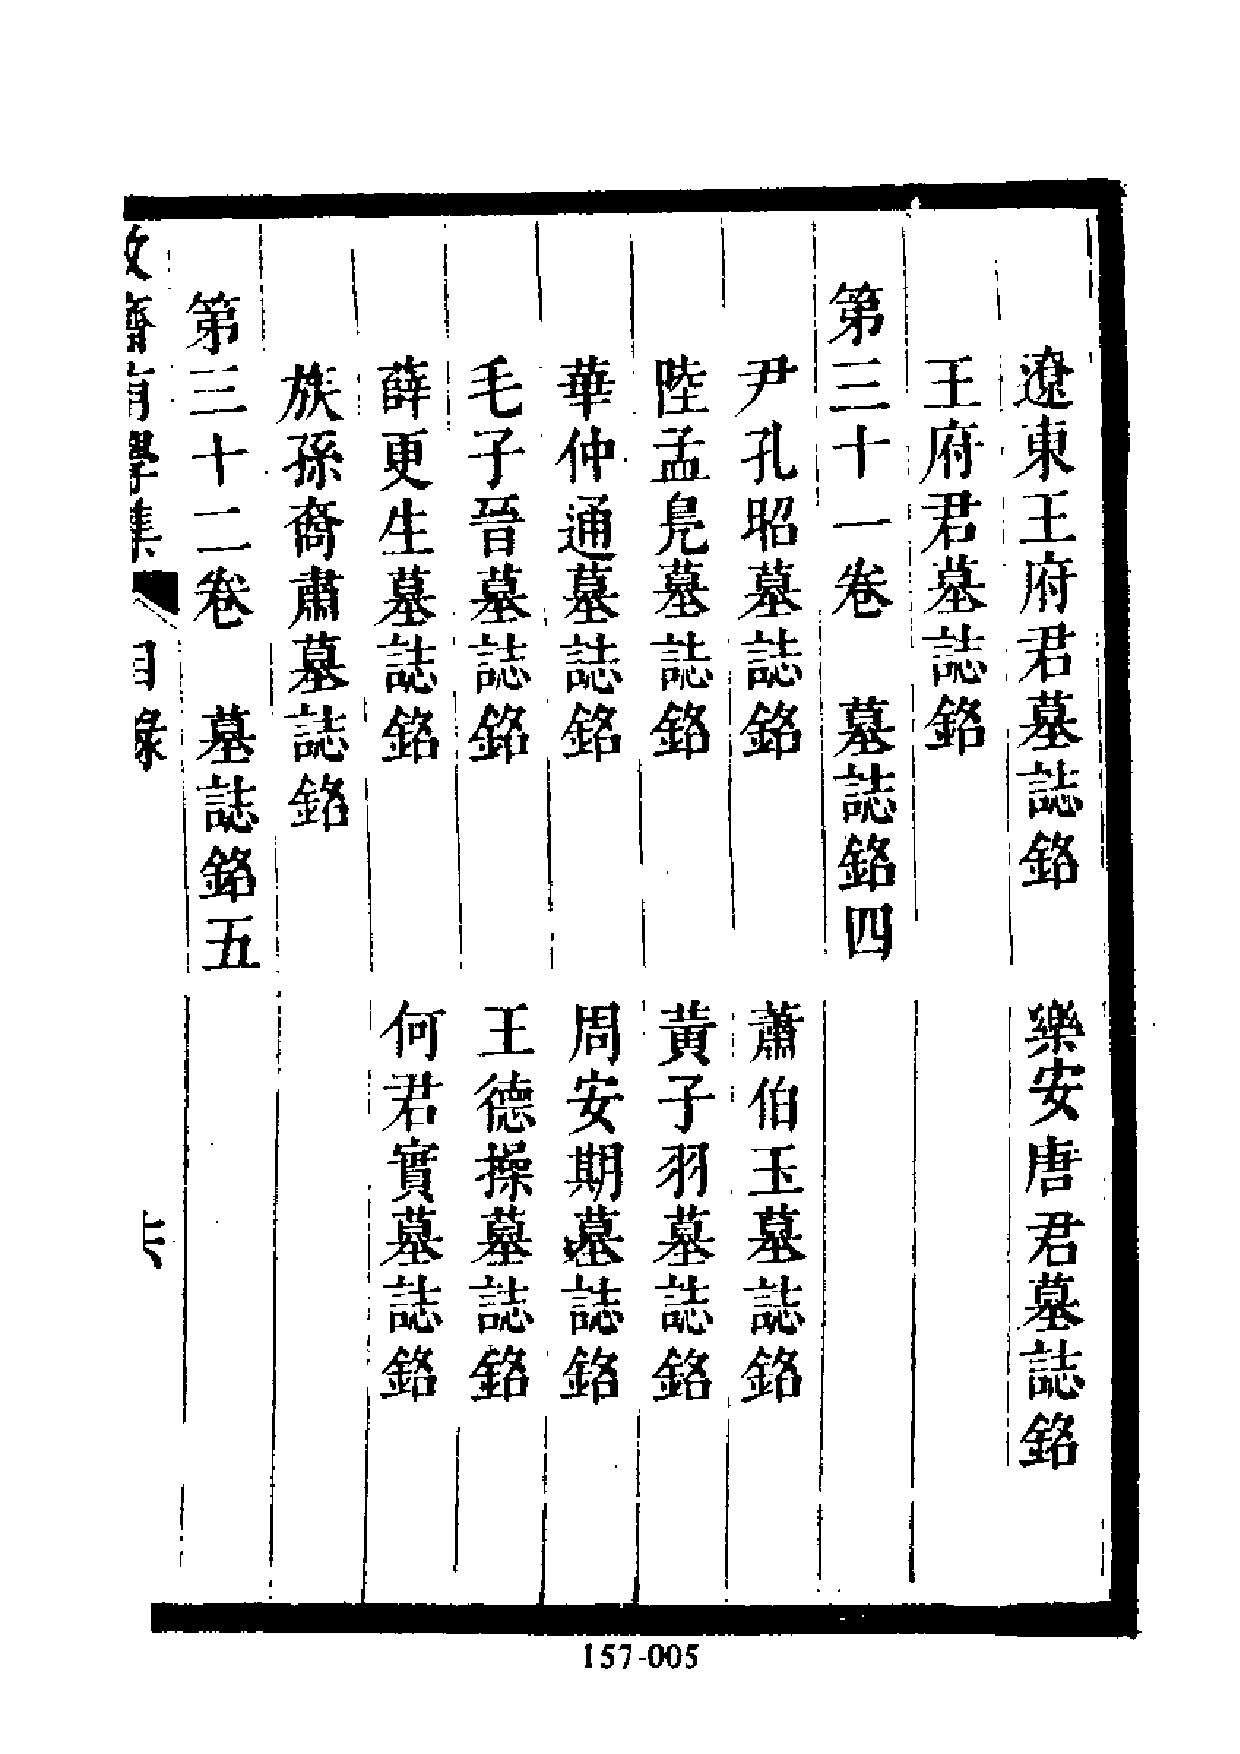 遼東王府君墓誌銘　樂安唐君墓誌銘
王府君墓誌銘
第三十一卷　墓誌銘四
尹孔昭墓誌銘　蕭伯玉墓誌銘
陸孟鳧墓誌銘　黃子羽墓誌銘
華仲通墓誌銘　周安期墓誌銘
毛子晉墓誌銘　王德操墓誌銘
薛更生墓誌銘　何君實墓誌銘
族孫裔肅墓誌銘
第三十二卷　墓誌銘五
牧齋有學集　目錄　
157-005